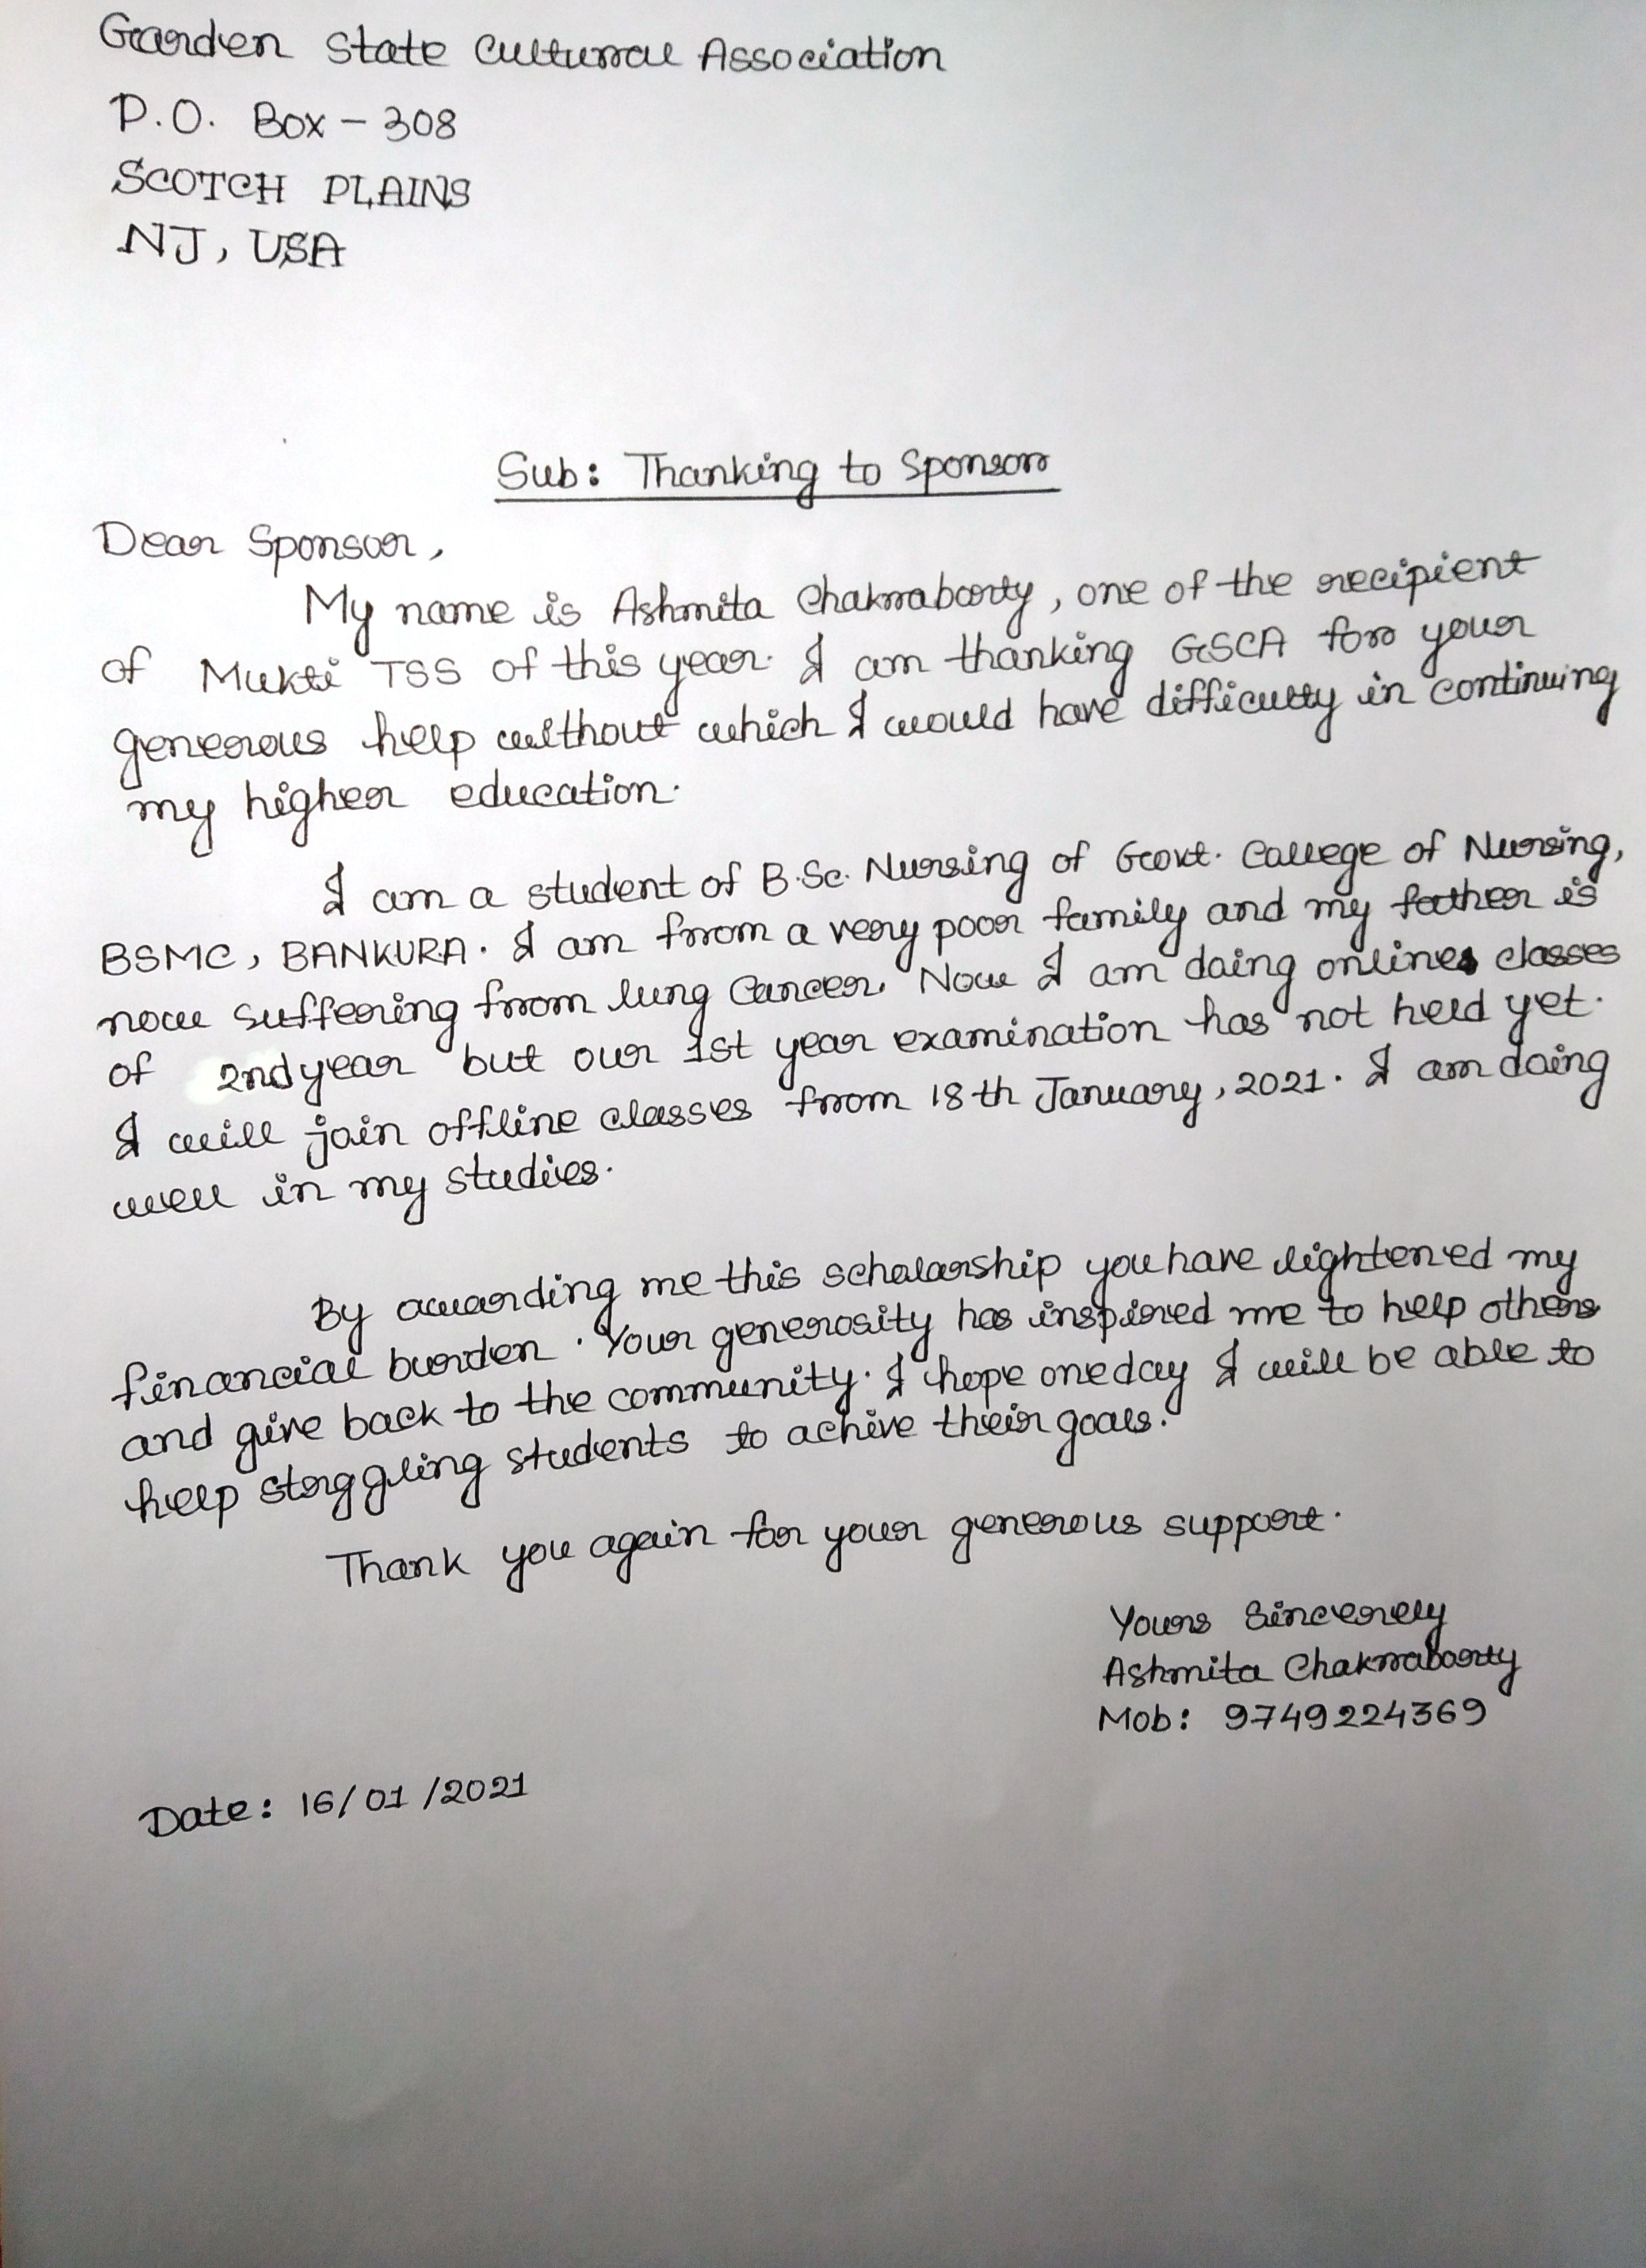 Garden State Cultural Association
P.O. Box - 308
SCOTCH PLAINS
NJ, USA
Sub: Thanking to Sponsor
Dear Sponsor,
My name is Ashmita Chakraborty, one of the recipient
of Mukti TSS of this year. I am thanking GSCA for your
generous help without which I would have difficulty in continuing
my higher education.
I am a student of B.Sc. Nursing of Govt. College of Nursing,
BSMC, BANKURA. I am from a very poor family and my father is
now suffering from lung Cancer. Now I am doing online classes
of 2nd year but our 1st year examination has not held yet.
I will join offline classes from 18th January, 2021. I am doing
well in my studies.
By awarding me this scholarship you have lightened my
financial burden. Your generosity has inspired me to help others
and give back to the community. I hope one day I will be able to
help strggling students to achive their goals.
Thank you again for your generous support.
Yours Sincerely
Ashmita Chakraborty
Mob: 9749224369
Date: 16/01/2021